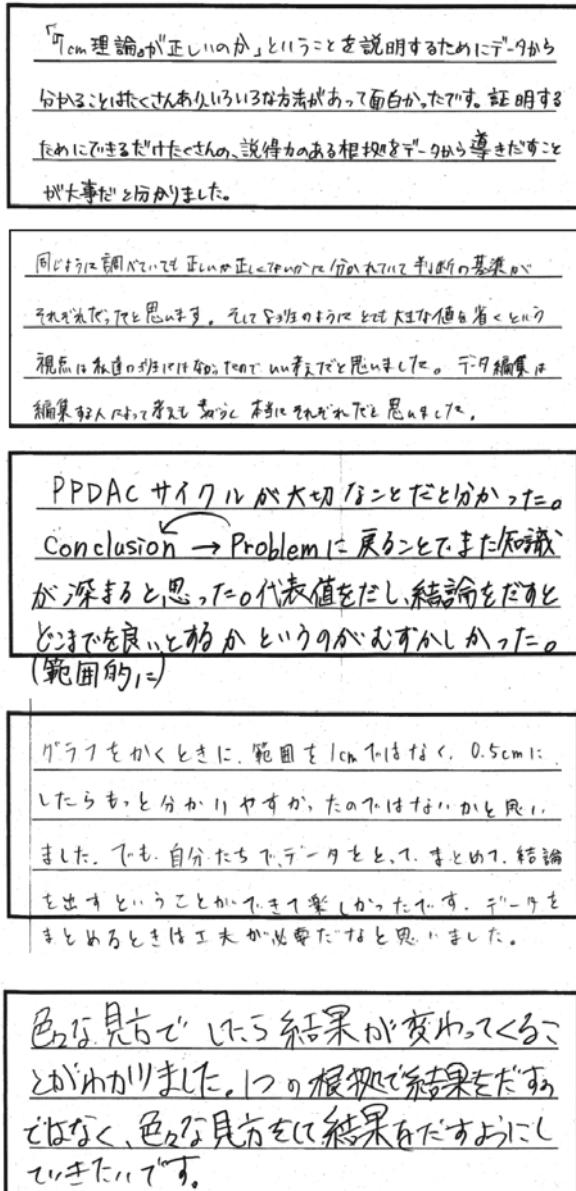 「7cm理論が正しいのか」ということを説明するためにデータから
分かることはたくさんありいろいろな方法があって面白かったです。証明する
ためにできるだけたくさんの、説得力のある根拠をデータから導きだすこと
が大事だと分かりました。
同じように調べていても正しいか正しくないかに分かれていて判断の基準が
それぞれだったと思います。そして8班のようにとても大きな値を省くという
視点は私達の班にはなかったのでいい考えだと思いました。データ編集は
編集する人によって考えも違うし本当にそれぞれだと思いました。
PPDACサイクルが大切なことだと分かった。
Conclusion → Problemに戻ることでまた知識
が深まると思った。代表値をだし、結論をだすと
どこまでを良いとするかというのがむずかしかった。
(範囲的に)
グラフをかくときに、範囲を1cmではなく、0.5cmに
したらもっと分かりやすかったのではないかと思い
ました。でも、自分たちで、データをとって、まとめて、結論
を出すということができて楽しかったです。データを
まとめるときは工夫が必要だなと思いました。
色々な見方でしたら結果が変わってくるこ
とがわかりました。1つの根拠で結果をだすの
ではなく、色々な見方をして結果をだすようにし
ていきたいです。